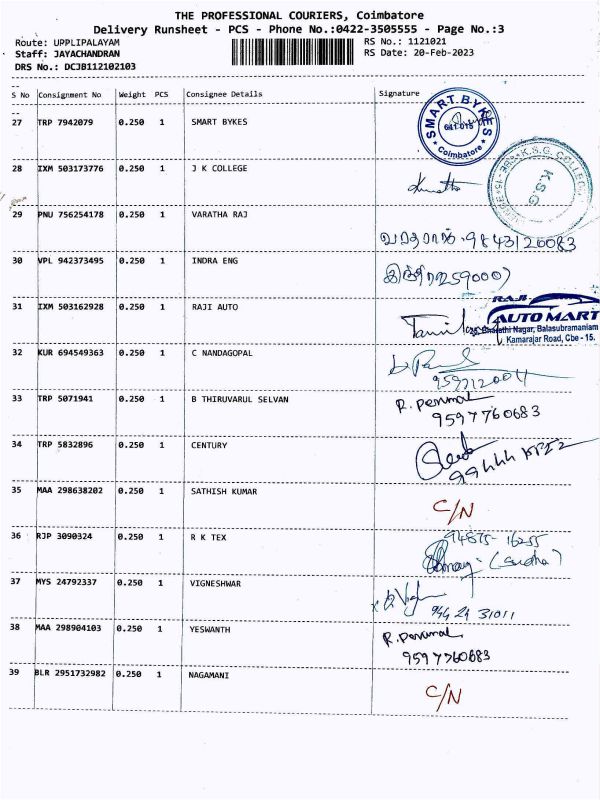 THE PROFESSIONAL COURIERS, Coimbatore
Delivery Runsheet - PCS - Phone No.:0422-3505555 - Page No.:3
Route: UPPLIPALAYAM RS No.: 1121021
Staff: JAYACHANDRAN RS Date: 20-Feb-2023
DRS No.: DCJB112102103
S No Consignment No Weight PCS Consignee Details Signature
27 TRP 7942079 0.250 1 SMART BYKES
SMART BYKES
641 015
Coimbatore
28 IXM 503173776 0.250 1 J K COLLEGE
K.S.G. COLLEGE
K.S.G
29 PNU 756254178 0.250 1 VARATHA RAJ
வரதராஜ். 9843126083
30 VPL 942373495 0.250 1 INDRA ENG
31 IXM 503162928 0.250 1 RAJI AUTO
RAJI
AUTO MART
Bharathi Nagar, Balasubramaniam
Kamarajar Road, Cbe - 15.
32 KUR 694549363 0.250 1 C NANDAGOPAL
33 TRP 5071941 0.250 1 B THIRUVARUL SELVAN
R. Perumal
9597760683
34 TRP 5832896 0.250 1 CENTURY
35 MAA 298638202 0.250 1 SATHISH KUMAR
C/N
36 RJP 3090324 0.250 1 R K TEX
94875-16255
(Sudha)
37 MYS 24792337 0.250 1 VIGNESHWAR
944 24 31011
38 MAA 298904103 0.250 1 YESWANTH
R. Perumal
9597760683
39 BLR 2951732982 0.250 1 NAGAMANI
C/N